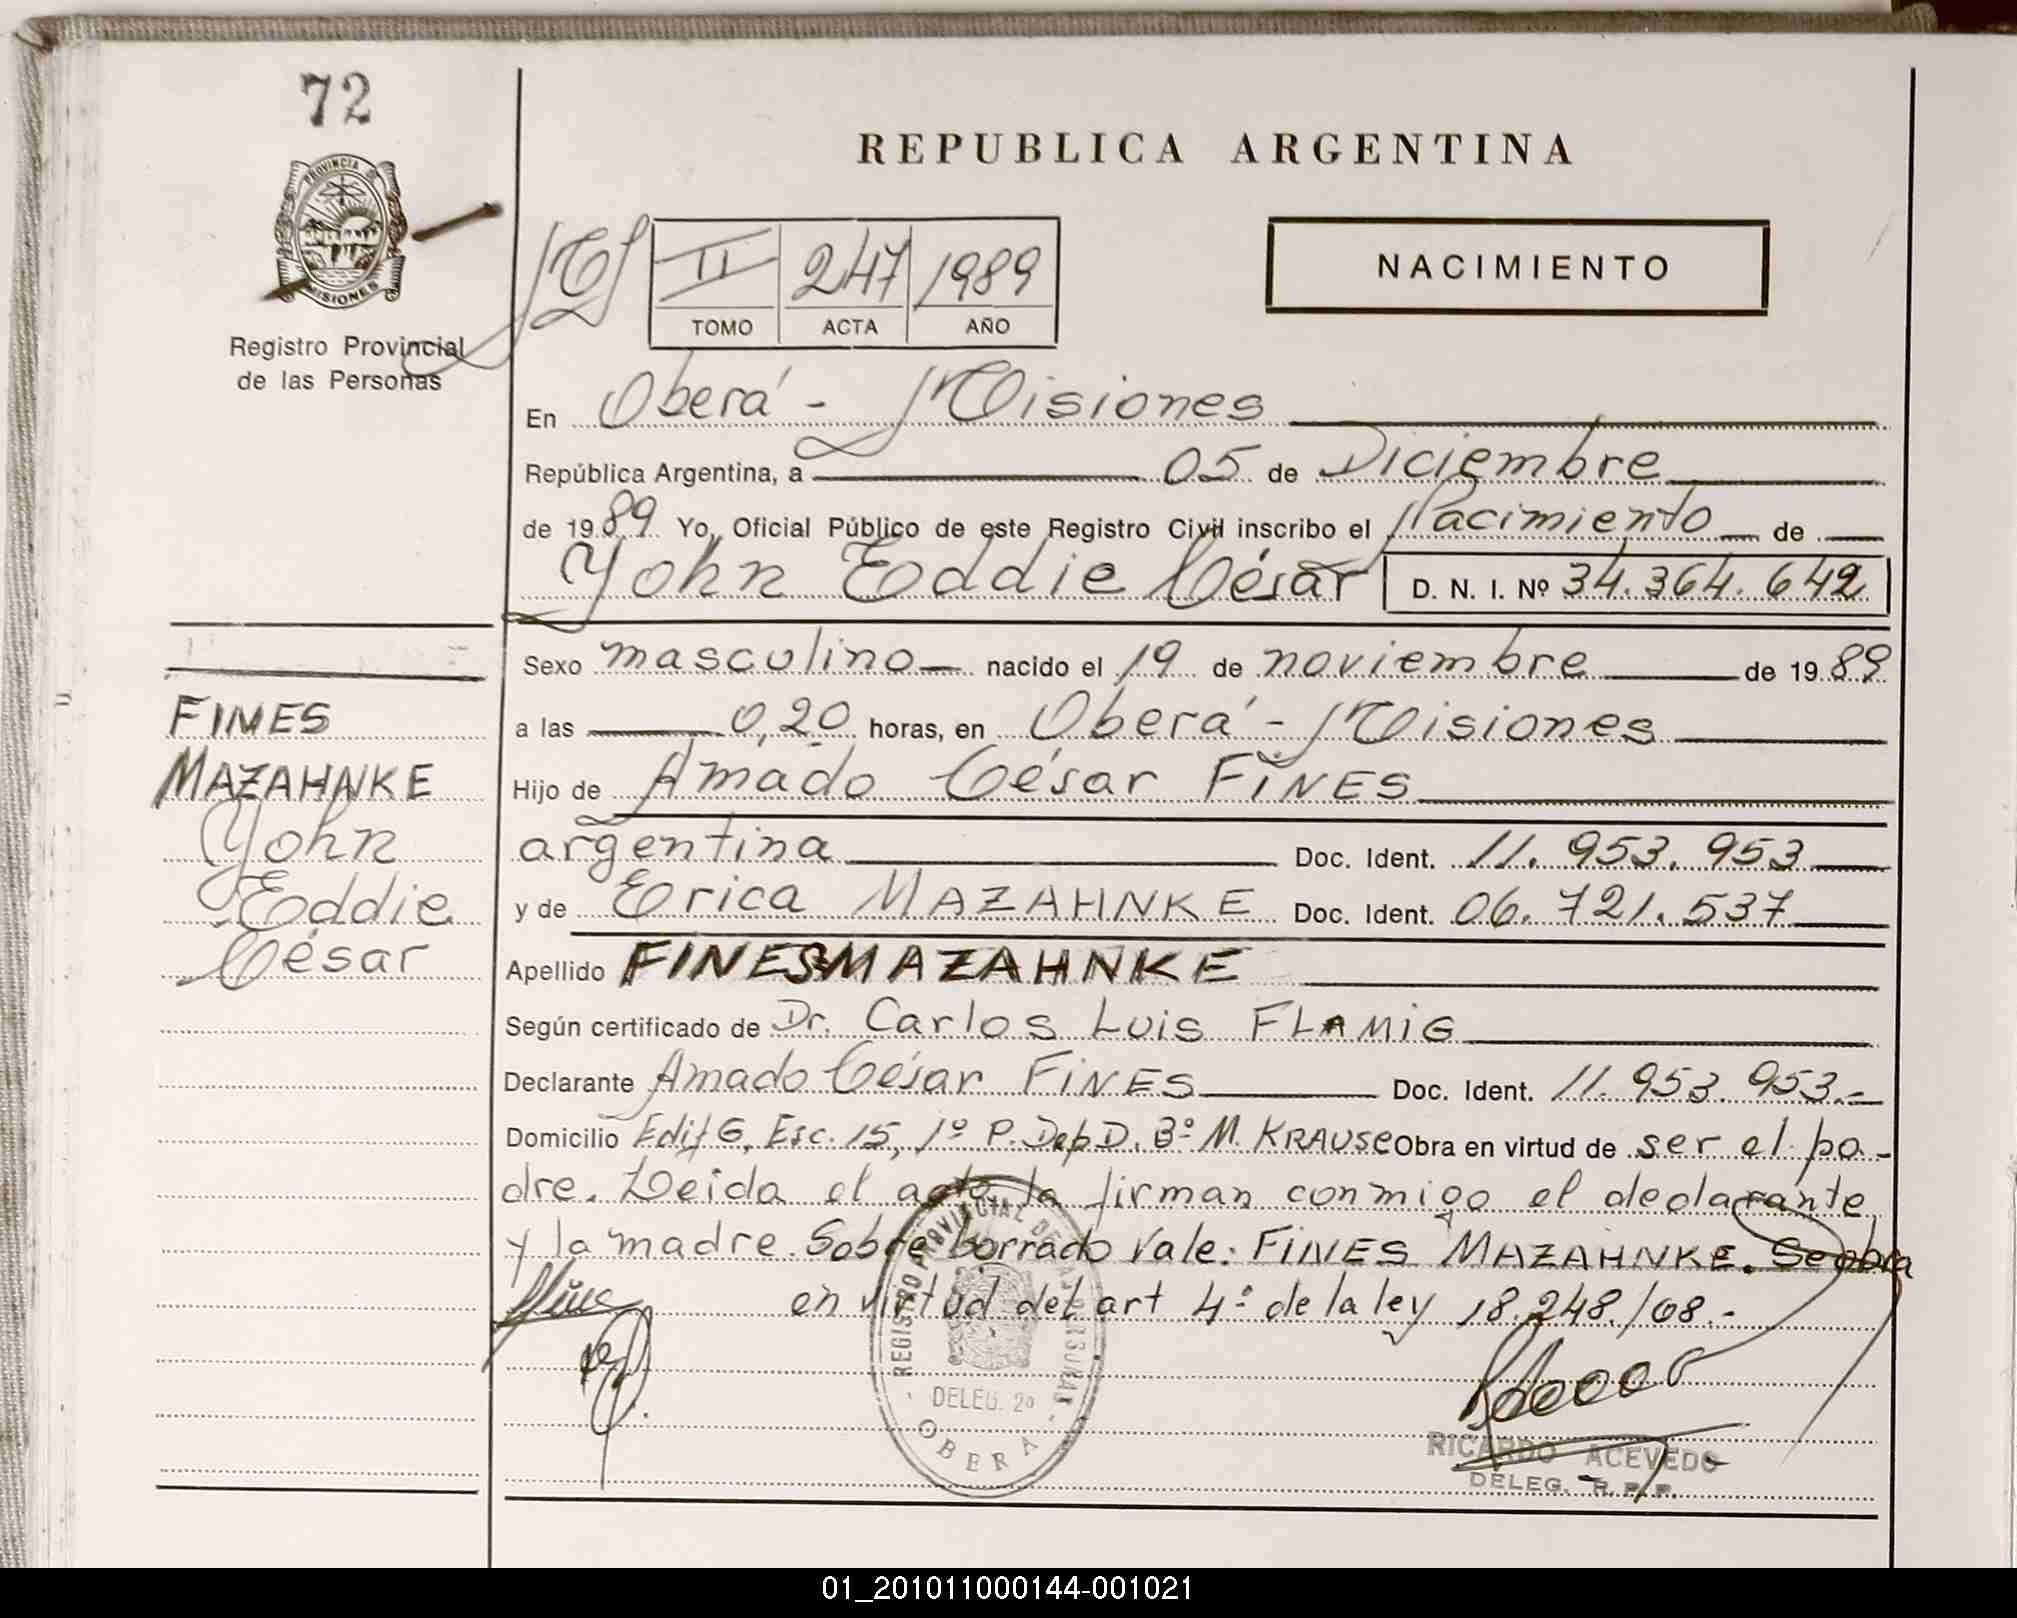 72
REPUBLICA ARGENTINA
PROVINCIA DE
MISIONES
Registro Provincial
de las Personas
II 247 1989
TOMO ACTA AÑO
NACIMIENTO
En Oberá - Misiones
República Argentina, a 05 de Diciembre
de 1989 Yo, Oficial Público de este Registro Civil inscribo el Nacimiento de
Yohn Eddie César D. N. I. Nº 34.364.642
Sexo masculino nacido el 19 de noviembre de 1989
a las 0,20 horas, en Oberá - Misiones
Hijo de Amado César FINES
argentina Doc. Ident. 11.953.953
y de Erica MAZAHNKE Doc. Ident. 06.721.537
Apellido FINES MAZAHNKE
Según certificado de Dr. Carlos Luis FLAMIG
Declarante Amado César FINES Doc. Ident. 11.953.953.-
Domicilio Edif G, Esc. 15, 1º P. Dep D. Bº M. KRAUSE Obra en virtud de ser el pa-
dre. Leida el acta, la firman conmigo el declarante
y la madre. Sobre borrado Vale: FINES MAZAHNKE. Se obra
en virtud del art 4º de la ley 18.248./08.-
FINES
MAZAHNKE
Yohn
Eddie
César
REGISTRO PROVINCIAL DE LAS PERSONAS
- DELEG. 2º -
OBERA
RICARDO ACEVEDO
DELEG. R. P. P.
01_201011000144-001021